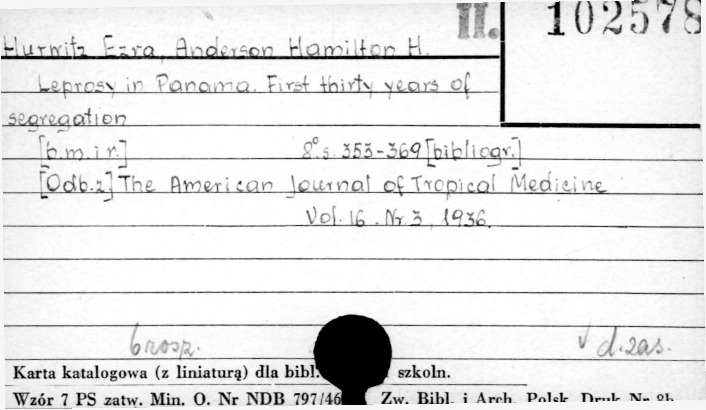 II. 102578
Hurwitz Ezra, Anderson Hamilton H.
Leprosy in Panama. First thirty years of
segregation
[b.m.i r.] 8°s. 353-369 [bibliogr.]
[Odb.z] The American Journal of Tropical Medicine
Vol. 16. Nr 3, 1936.
brosz. √ d.zas.
Karta katalogowa (z liniaturą) dla bibl. szkoln.
Wzór 7 PS zatw. Min. O. Nr NDB 797/46 Zw. Bibl. i Arch. Polsk. Druk Nr 8b